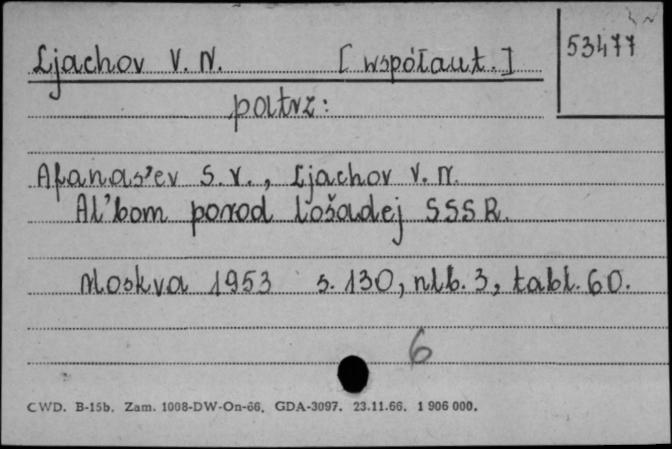 Ljachov V. N. [współaut.]
53477
patrz:
Afanas'ev S. V., Ljachov V. N.
Al'bom porod lošadej SSSR.
Moskva 1953 s. 130, nlb. 3, tabl. 60.
6
CWD. B-15b. Zam. 1008-DW-On-66. GDA-3097. 23.11.66. 1 906 000.